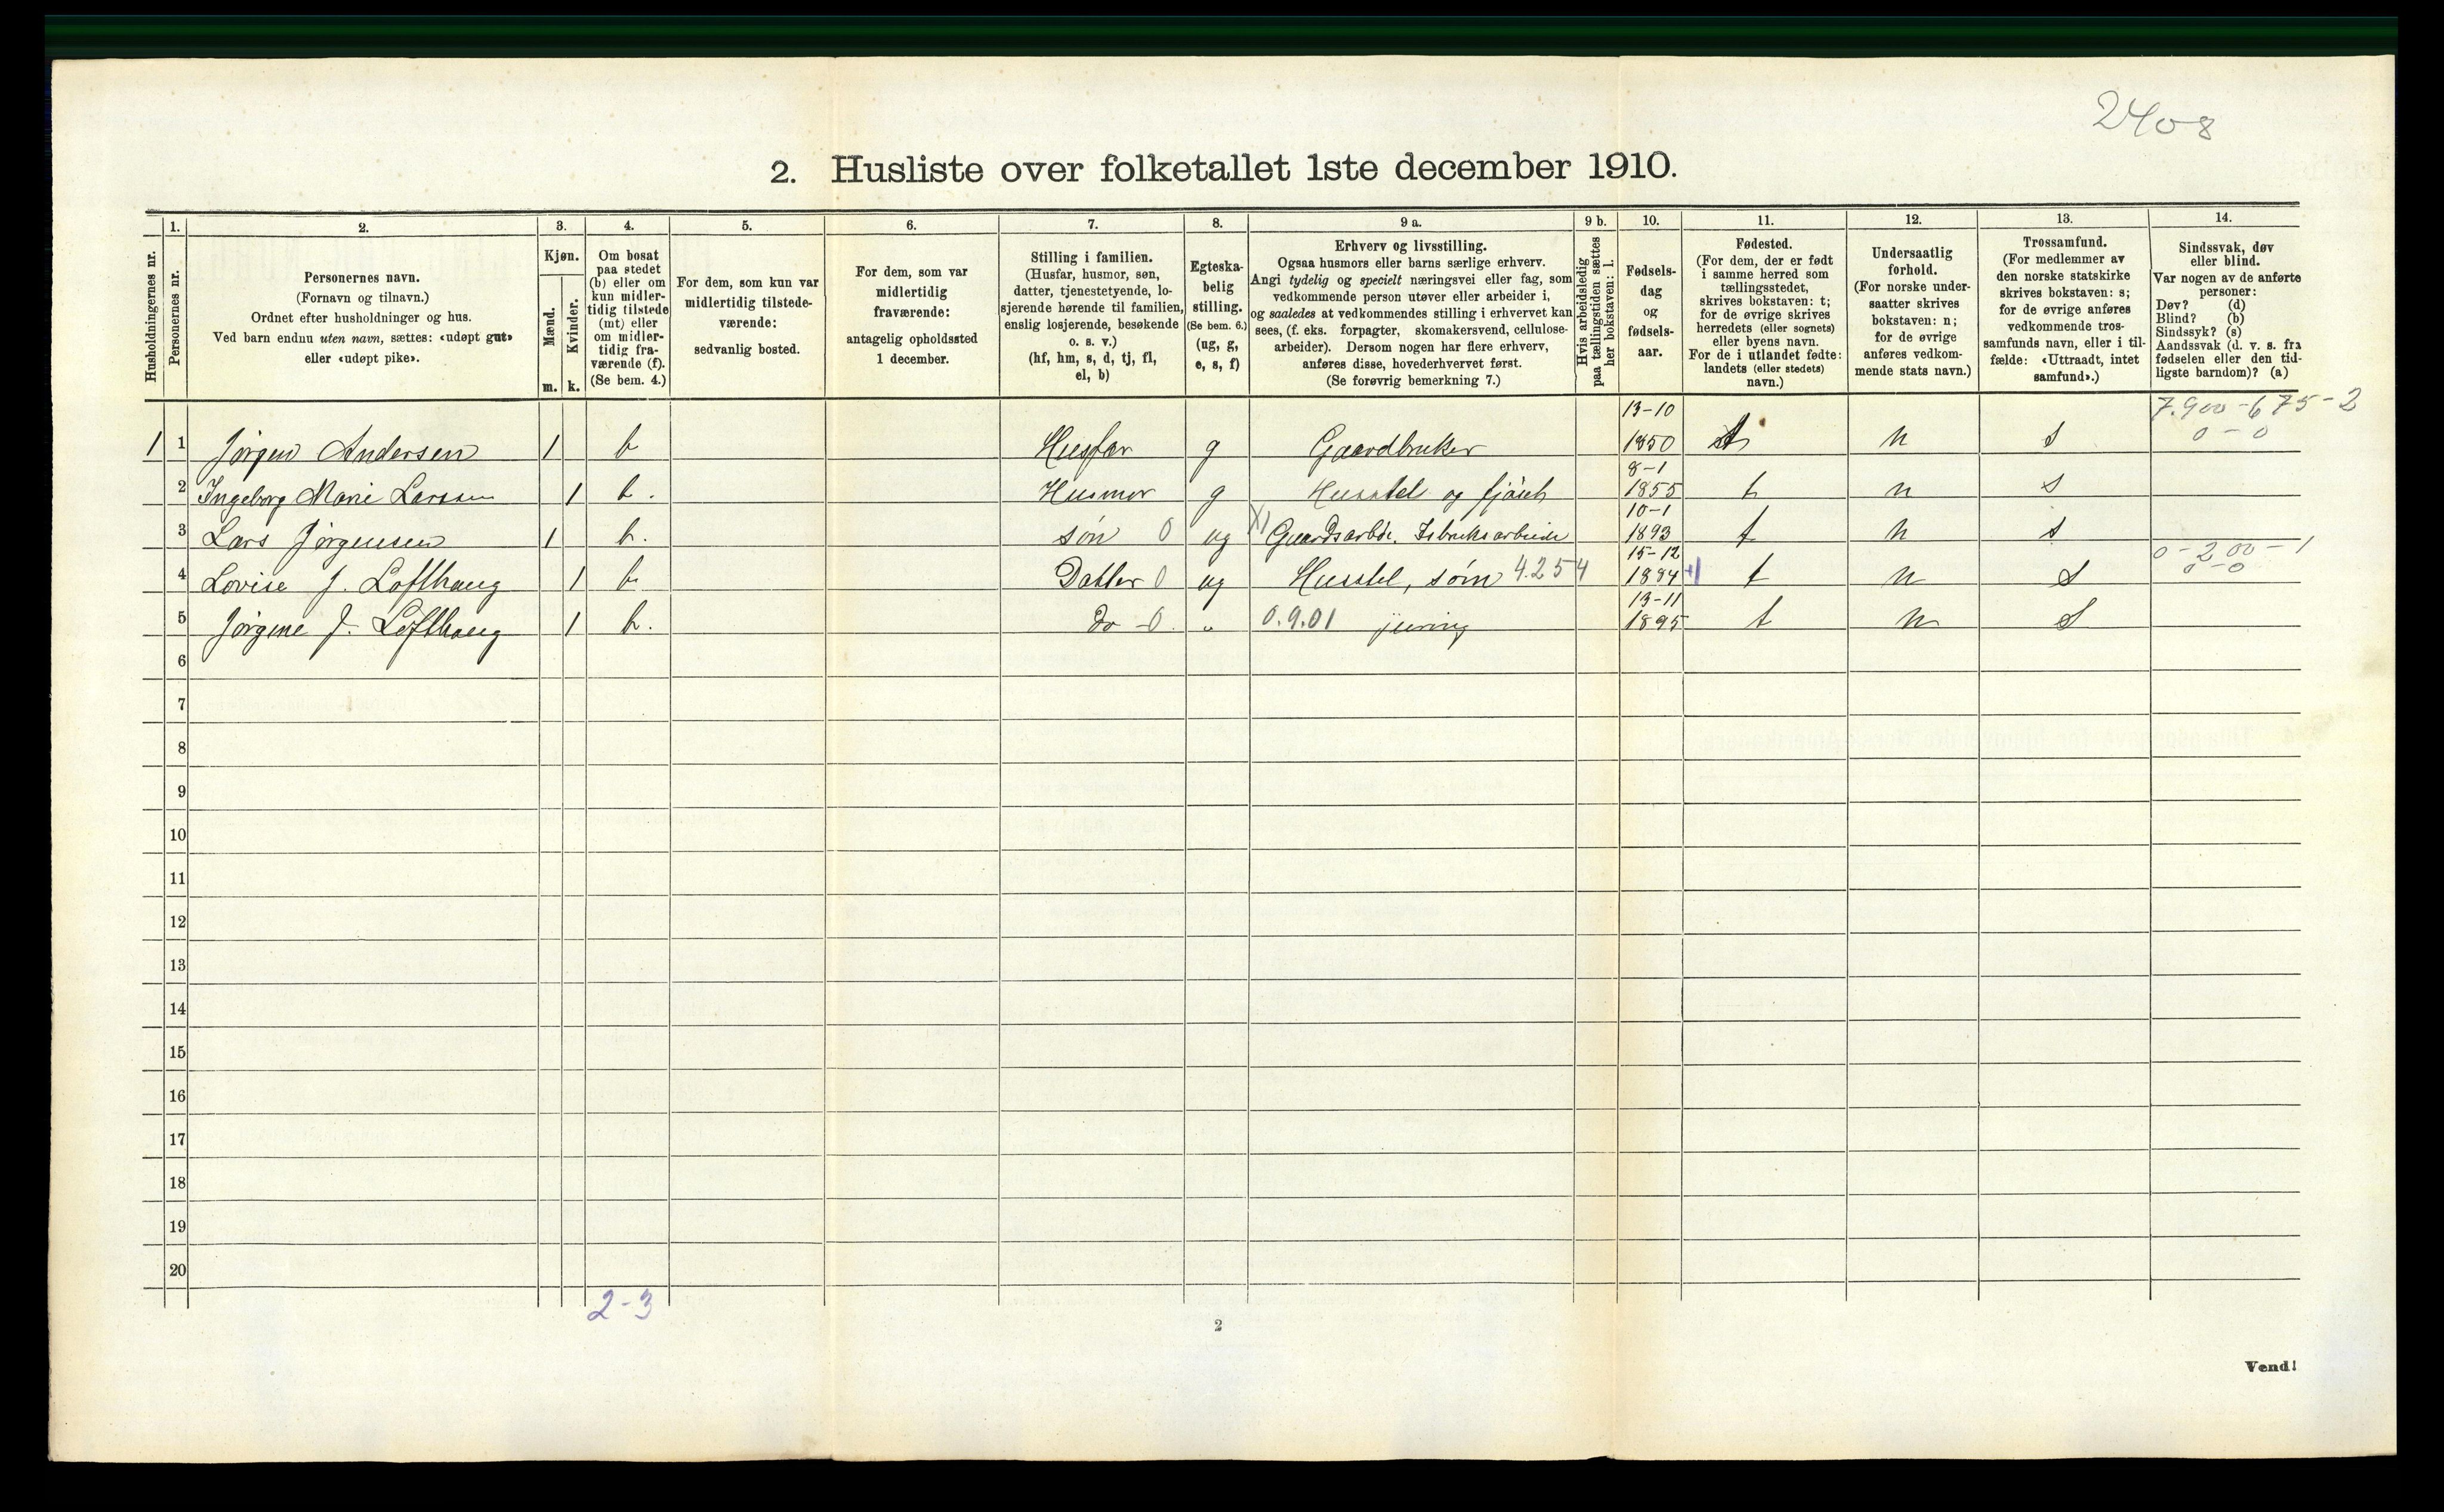 2408
2. Husliste over folketallet 1ste december 1910.
Husholdningernes nr.
1.
Personernes nr.
2.
Personernes navn.
(Fornavn og tilnavn.)
Ordnet efter husholdninger og hus.
Ved barn endnu uten navn, sættes: «udøpt gut»
eller «udøpt pike».
3.
Kjøn.
Mænd.
Kvinder.
m. k.
4.
Om bosat
paa stedet
(b) eller om
kun midler-
tidig tilstede
(mt) eller
om midler-
tidig fra-
værende (f).
(Se bem. 4.)
5.
For dem, som kun var
midlertidig tilstede-
værende:
sedvanlig bosted.
6.
For dem, som var
midlertidig
fraværende:
antagelig opholdssted
1 december.
7.
Stilling i familien.
(Husfar, husmor, søn,
datter, tjenestetyende, lo-
sjerende hørende til familien,
enslig losjerende, besøkende
o. s. v.)
(hf, hm, s, d, tj, fl,
el, b)
8.
Egteska-
belig
stilling.
(Se bem. 6.)
(ug, g,
e, s, f)
9 a.
Erhverv og livsstilling.
Ogsaa husmors eller barns særlige erhverv.
Angi tydelig og specielt næringsvei eller fag, som
vedkommende person utøver eller arbeider i,
og saaledes at vedkommendes stilling i erhvervet kan
sees, (f. eks. forpagter, skomakersvend, cellulose-
arbeider). Dersom nogen har flere erhverv,
anføres disse, hovederhvervet først.
(Se forøvrig bemerkning 7.)
9 b.
Hvis arbeidsledig
paa tællingstiden sættes
her bokstaven: l.
10.
Fødsels-
dag
og
fødsels-
aar.
11.
Fødested.
(For dem, der er født
i samme herred som
tællingsstedet,
skrives bokstaven: t;
for de øvrige skrives
herredets (eller sognets)
eller byens navn.
For de i utlandet fødte:
landets (eller stedets)
navn.)
12.
Undersaatlig
forhold.
(For norske under-
saatter skrives
bokstaven: n;
for de øvrige
anføres vedkom-
mende stats navn.)
13.
Trossamfund.
(For medlemmer av
den norske statskirke
skrives bokstaven: s;
for de øvrige anføres
vedkommende tros-
samfunds navn, eller i til-
fælde: «Uttraadt, intet
samfund».)
14.
Sindssvak, døv
eller blind.
Var nogen av de anførte
personer:
Døv? (d)
Blind? (b)
Sindssyk? (s)
Aandssvak (d. v. s. fra
fødselen eller den tid-
ligste barndom)? (a)
7.900-675-2
0-0
1 1 Jørgen Andersen 1 b Husfar g Gaardbruker 13-10 1850 t n s
2 Ingeborg Marie Larssen 1 b. Husmor g Husstel og fjøist 8-1 1855 t n s
3 Lars Jørgensen 1 b. søn 0 ug X) Gaardsarbde. Isbruksarbeide 10-1 1893 t n s
0-200-1
0-0
4 Lovise J. Lofthaug 1 b Datter 0 ug Husstel, 4.254 15-12 1884 t n s
5 Jørgine J. Lofthaug 1 b. do 0. " 0.9.01 13-11 1895 t n s
6
7
8
9
10
11
12
13
14
15
16
17
18
19
20
2-3
2
Vend!